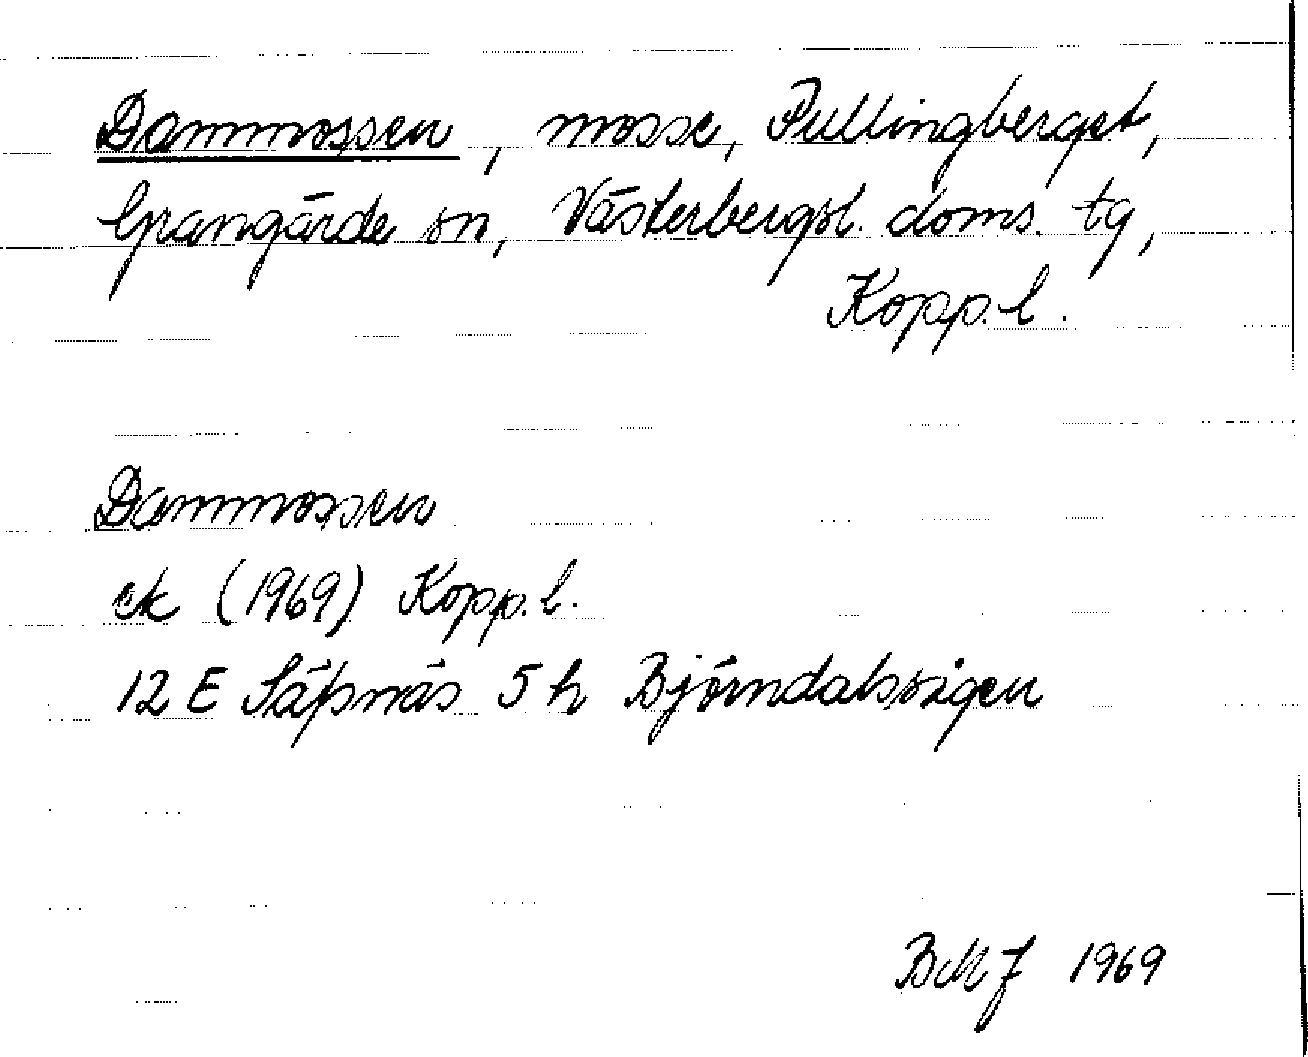 Dammossen, mosse, Pullingberget,
Grangärde sn, Västerbergsl. doms. tg,
Kopp. l.
Dammossen
ek (1969) Kopp. l.
12 E Säfsnäs 5 h Björndalsvigen
BMJ 1969